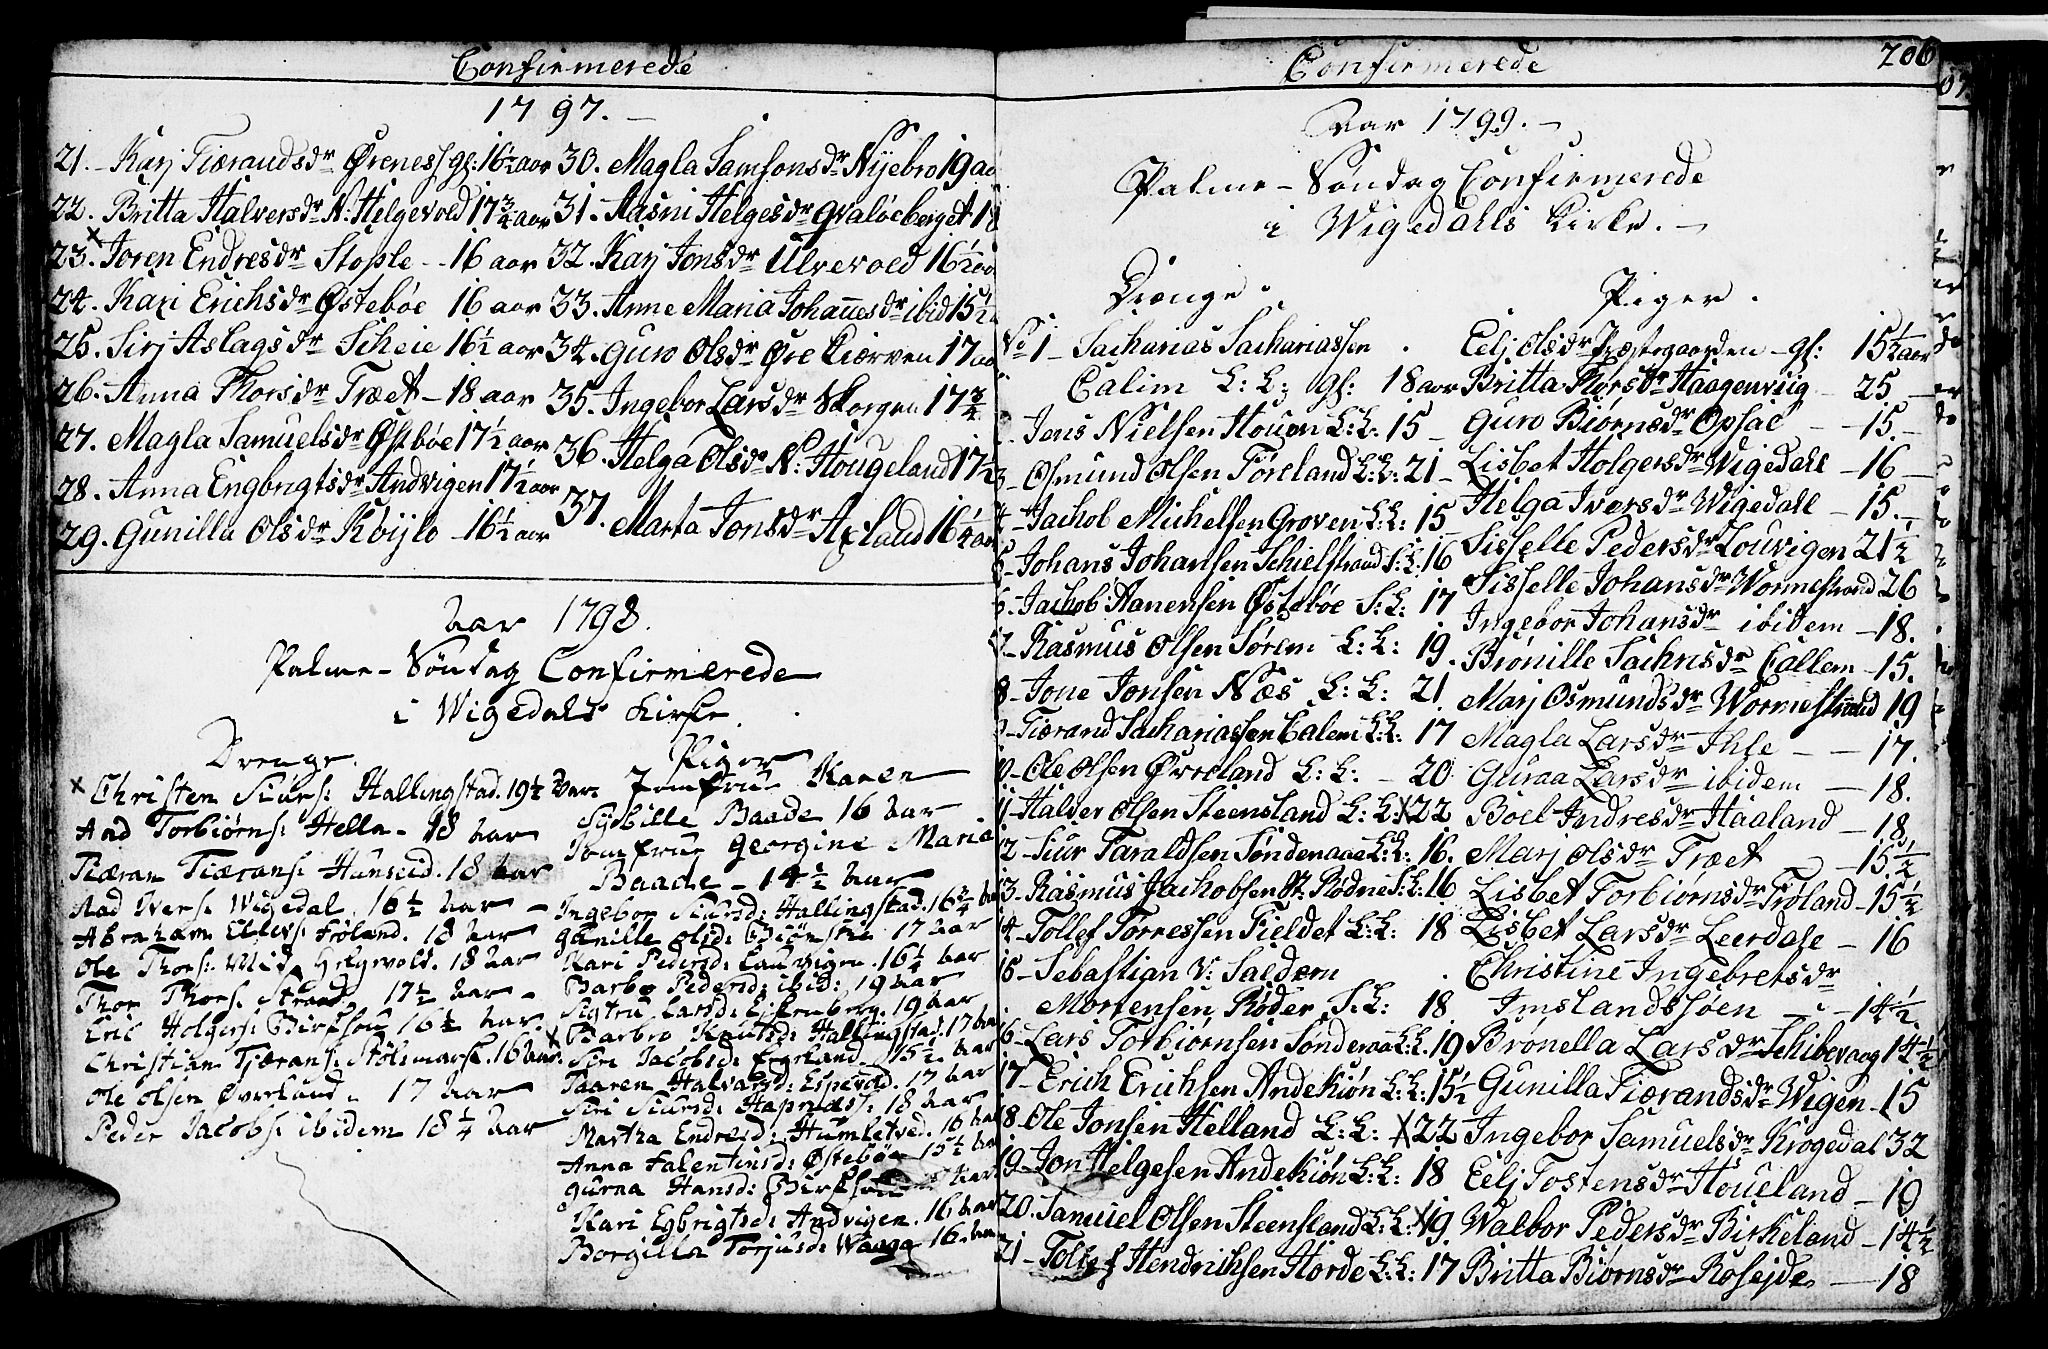 Confirmerede
1797.
21. Karj Tiærandsdr Ørenes gl: 16½ aar
22. Britta Halversdr N: Helgevold 17¾ aar
23. Joren Endresdr Stople - 16 aar
24. Kari Erichsdr Østebøe 16 aar
25. Sirj Aslagsdr Scheie 16½ aar
26. Anna Thorsdr Træet - 18 aar
27. Magla Samuelsdr Østebøe 17½ aar
28. Anna Engbrigtsdr Andvigen 17½ aar
29. Gunilla Olsdr - 16½ aar
30. Magla Samsonsdr Nyebro 19 aa
31. Aasni Helgesdr Gvaløeberget 1
32. Karj Jonsdr Ulvevold 16½ aa
33. Anne Maria Johanesdr ibid 15½
34. Guro Olsdr Øre Kiærven 17 aa
35. Ingebor Larsdr Skorgen 17¾
36. Helga Olsdr N: Hougeland 17½
37. Marta Jonsdr Axland 16¼ aa
Aar 1798.
Palme-Søndag Confirmerede
i Wigedals Kirke.
Drenge.
Christen Siurs: Hallingstad. 19½ aar.
Aad Torbiørns: Hella - 18 aar
Tiæran Tiærans: Hunseid. 18 aar
Aad Ivers: Wigedal. 16½ aar
Abraham Ellevs: Frøland. 18 aar
Ole Thors: Helgevold. 18 aar
Thor Thors: Strand 17½ aar
Eric Holgers: Birkeland 16½ aar.
Christian Tjærans: Stølsmark. 16 aar.
Ole Olsen Øverland 17 aar
Peder Jacobs: ibidem 18¼ aar
Piger
Jomfrue Karen
Sybille Baade 16 aar
Jomfrue Georgine Maria
Baade - 14½ aar
Ingebor Siursd: Hallingstad. 16¾
Gunille Olsd: 17 aar
Kari Pedersd: Lauvigen. 16½ aar
Barbo Pedersd: ibid: 19 aar
Sigtru Larsd: 19 aar
Barbro Knutsd: Hallingstad. 17 aar
Siri Jacobsd: 15½ aar
Taaren Halvarsd: Espevold. 17 aar
Siri Siursd: 18 aar
Martha Endresd: Humletved. 16
Anna Falentinsd: Østebøe 15½
Guraa Hansd:
Kari Egbrigtsd: Andvigen. 16 aar
Borgilla Torjusd: Waaga 16
Confirmerede 206
Aar 1799.
Palme-Søndag Confirmerede
i Wigedahls Kirke.
Drenge.
No 1 - Sacharias Sachariassen
Calim L: L: gl: 18 aar
2 - Jens Nielsen Houen L: L: 15
3 - Osmund Olsen Foreland L: L: 21
4 - Jachob Michelsen Groven L: L: 15
5 - Johans Johansen Schielstrand S: L: 16
6 - Jachob Aanensen Østebøe S: L: 17
7 - Rasmus Olsen Sørem L: L: 19.
8 - Jone Jonsen Næs L: L: 21.
9 - Tiærand Sachariassen Calem L: L: 17
10 - Ole Olsen Øvreland L: L: - 20
11 - Halver Olsen Steensland L: L: 22
12 - Siur Taraldsen Sønderaae L: L: 16.
13 - Rasmus Jachobsen St: Rødne S: L: 16
14 - Tollef Torressen Fieldet L: L: 18
15 - Sebastian V: Saldern
Mortensen Røder S: L: 18
16 - Lars Torbiørnsen Sønderaa L: L: 19
17 - Erich Erichsen Andekiøn L: L: 15½
18 - Ole Jonsen Helland L: L: 22
19 - Jon Helgesen Andekiøn L: L: 18
20 - Samuel Olsen Steensland L: L: 19.
21 - Tollef Hendrichsen Horde L: L: 17
Piger.
Eelj Olsdr Præstegaarden - gl: 15½ aar
Britta Thorsdr Haagenviig - 25
Guro Biørnsdr Opsal - 15.
Lisbet Holgersdr Wigedahl - 16
Helga Iversdr Wigedahl - 15.
Sisselle Pedersdr Louvigen 21½
Sisselle Johansdr Wormestrand 26
Ingebor Johansdr ibidem - 18.
Brønille Sachrisdr Callem - 15.
Marj Osmundsdr Wormestrand 19
Magla Larsdr Ihle - 17.
Guraa Larsdr ibidem - 18.
Boel Indresdr Haaland - 18.
Marj Olsdr Træet - 15½
Lisbet Torbiørnsdr Frøland - 15½
Lisbet Larsdr Leerdale - 16
Christine Ingebretsdr
Imslandssøen - 14½.
Brønella Larsdr Schibevaag 14½
Gunilla Tiærandsdr Wigen - 15
Ingebor Samuelsdr Krogedal 32
Eelj Tostensdr Høueland - 19
Walbor Pedersdr Birkeland - 14½
Britta Biørnsdr Roseide - 18